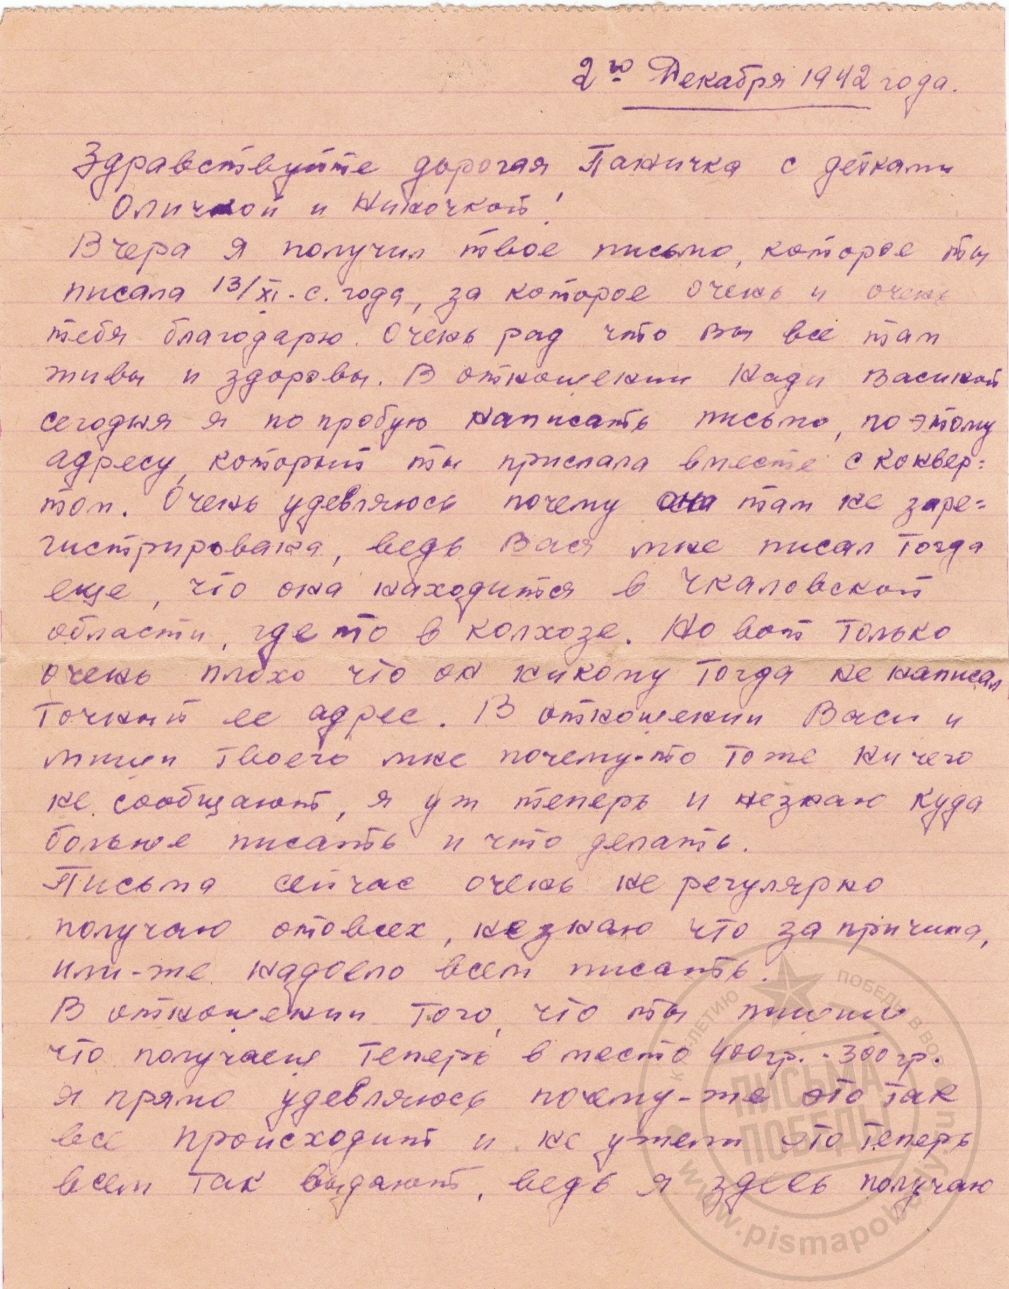 2го Декабря 1942 года.
Здравствуйте дорогая Паничка с детками
Оличкой и Ниночкой!
Вчера я получил твое письмо, которое ты
писала 13/XI-с. года, за которое очень и очень
тебя благодарю. Очень рад что вы все там
живы и здоровы. В отношении Нади Васиной
сегодня я попробую написать письмо, по этому
адресу, который ты прислала вместе с конвер=
том. Очень удевляюсь почему она там не заре=
гистрирована, ведь Вася мне писал тогда
еще, что она находится в Чкаловской
области, где то в колхозе. Но вот только
очень плохо что он никому тогда не написал
точный ее адрес. В отношении Васи и
Миши твоего мне почему-то тоже ничего
не сообщают, я уж теперь и незнаю куда
больше писать и что делать.
Письма сейчас очень не регулярно
получаю отовсех, незнаю что за причина,
или-же надоело всем писать.
В отношении того, что ты пишеш
что получаеш теперь в место 400гр. - 300гр.
я прямо удевляюсь почему-же это так
все происходит и не ужели это теперь
всем так выдают, ведь я здесь получаю
К 70-ЛЕТИЮ ПОБЕДЫ В ВОВ
ПИСЬМА
ПОБЕДЫ
www.pismapobedy.ru